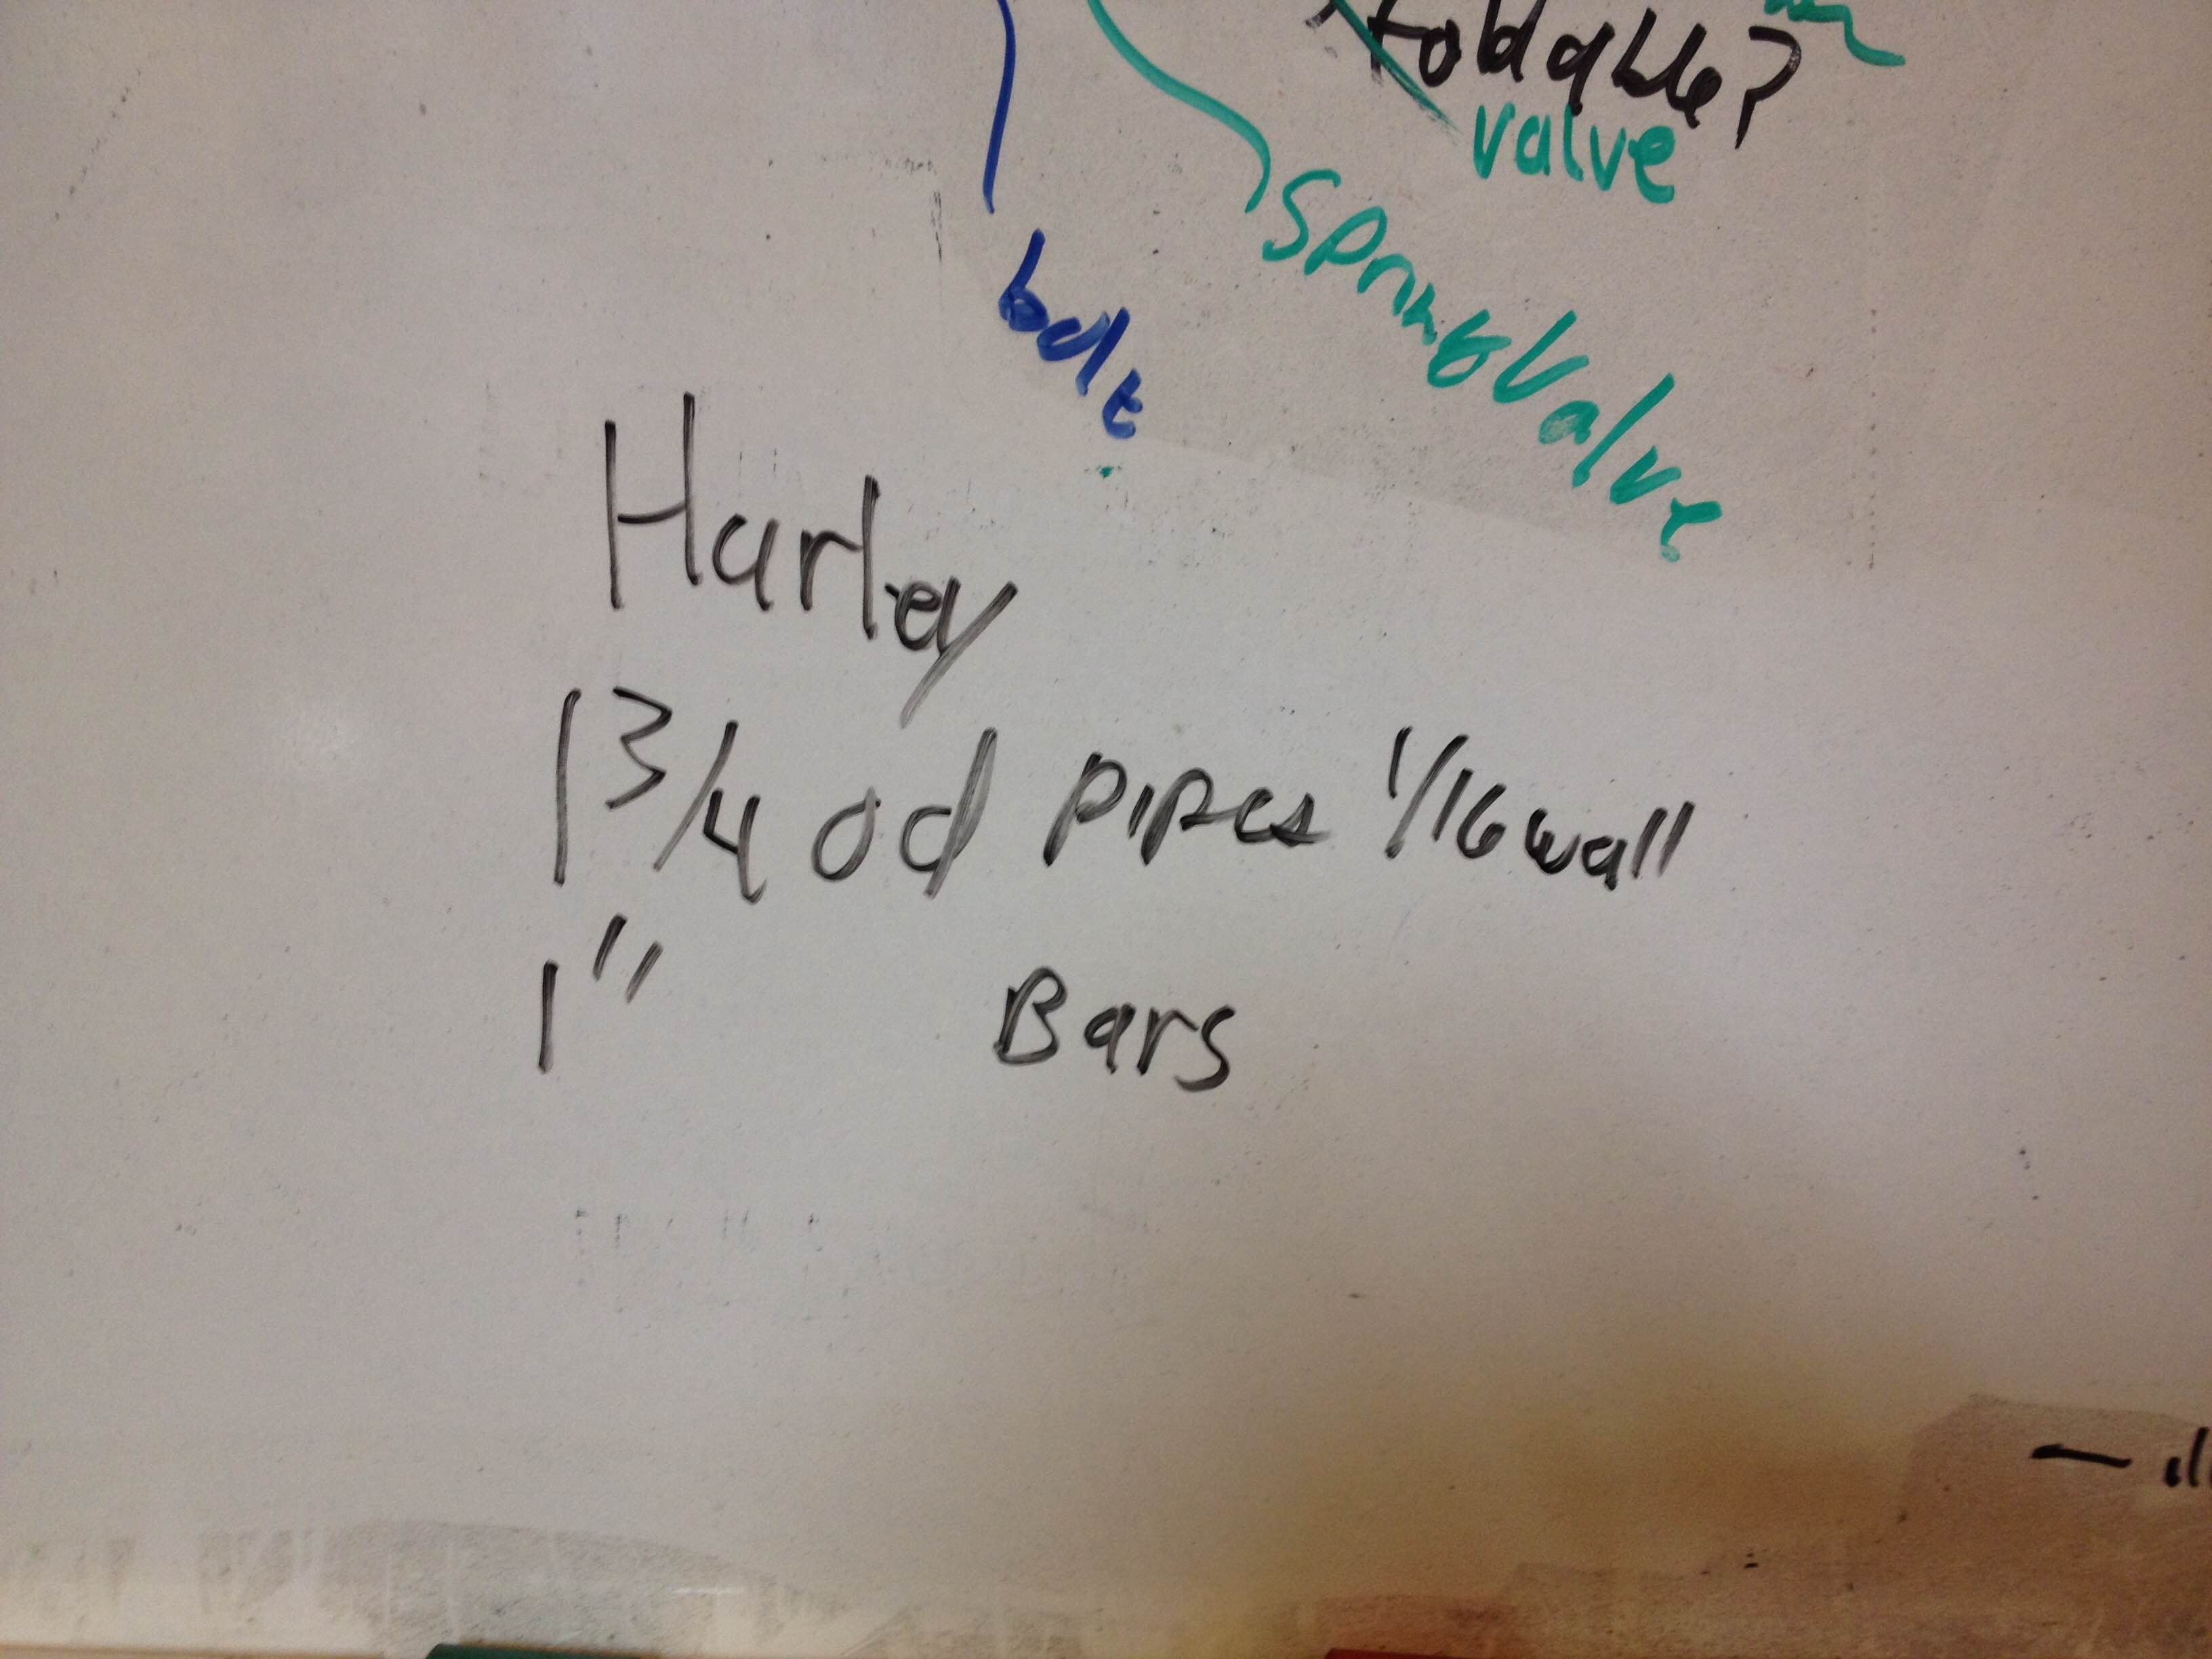 foldable?
valve
Spring Valve
bolt
Harley
1 3/4 od pipes 1/16 wall
1" Bars